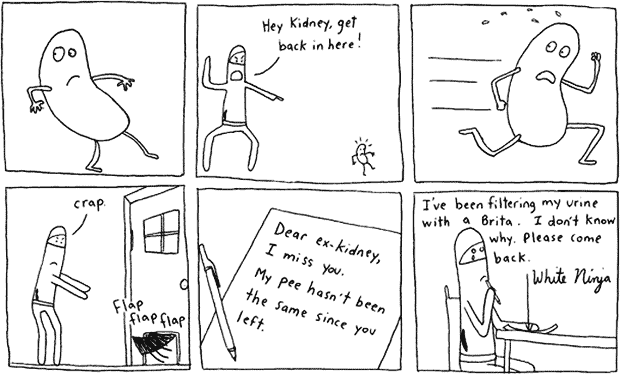 Hey Kidney, get
back in here!
crap.
Flap
flap flap
Dear ex-kidney,
I miss you.
My pee hasn't been
the same since you
left.
I've been filtering my urine
with a Brita. I don't know
why. Please come
back.
White Ninja